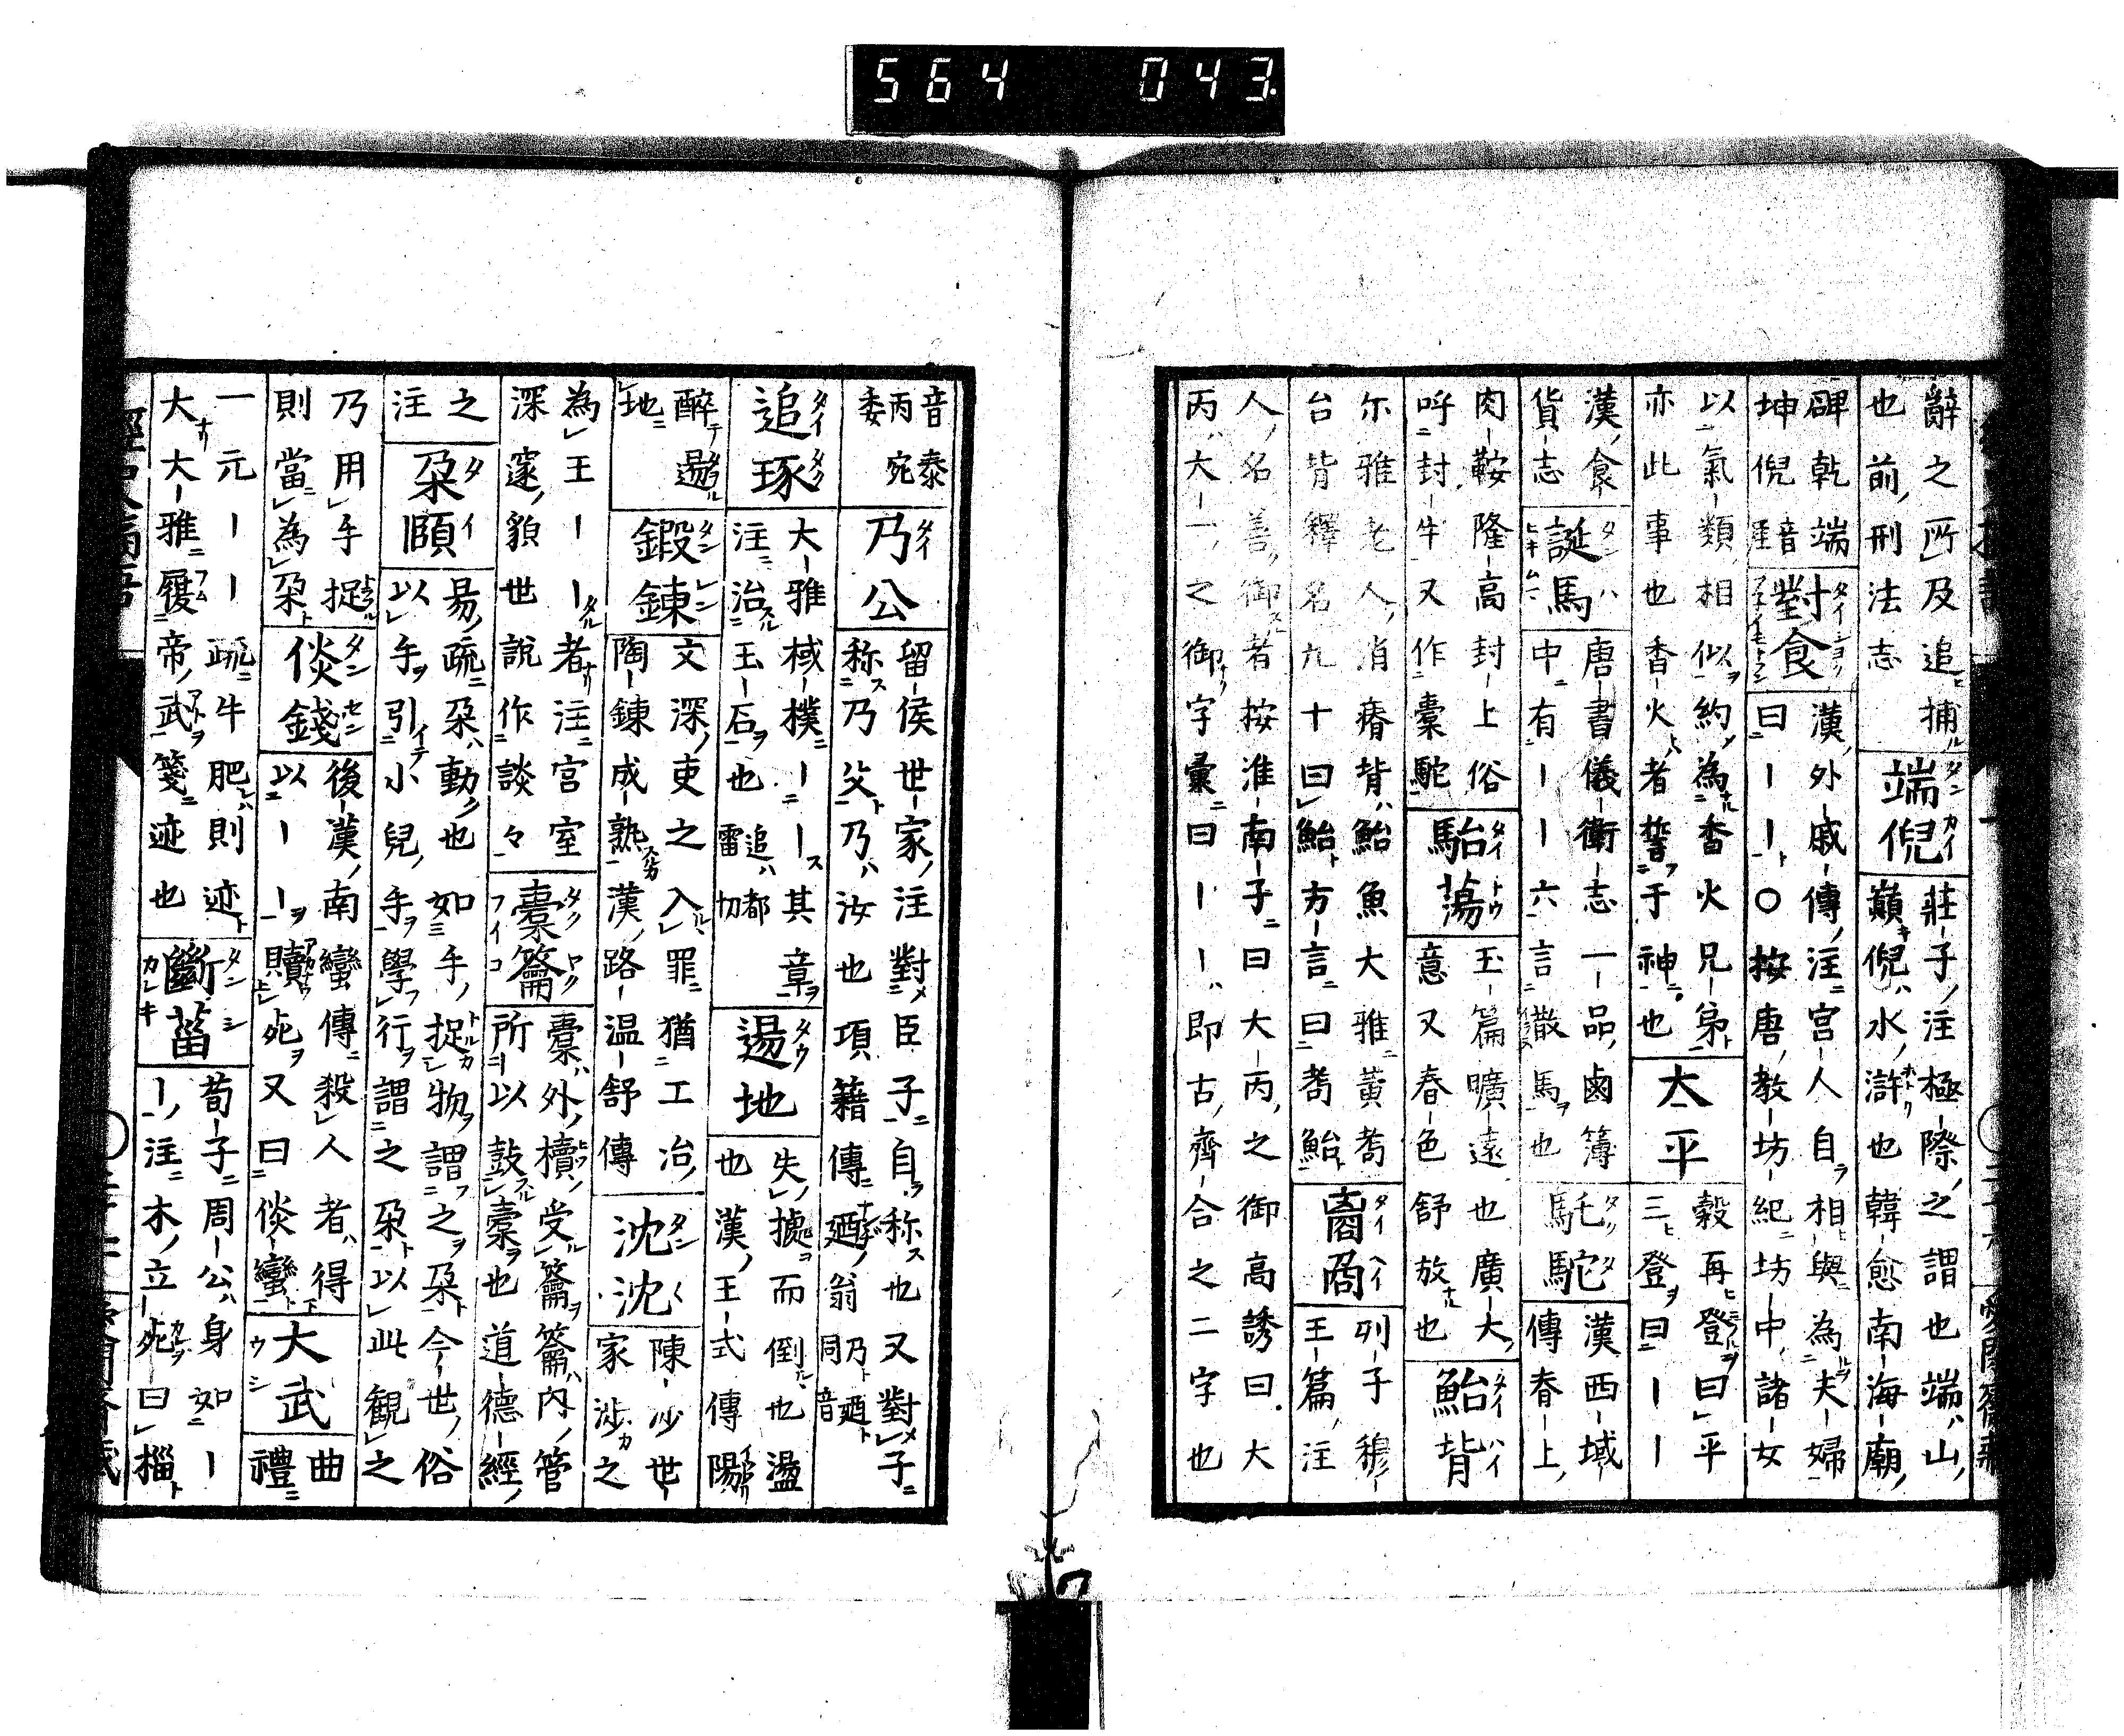 564 043.
辭之所及追捕
也前刑法志
端倪
莊子注極際之謂也端山
巔倪水滸也韓愈南海廟
碑乾端
坤倪
對食
漢外戚傳注宮人自相與為夫婦
曰一一〇按唐教坊紀坊中諸女
以氣類相似約為香火兄弟
亦此事也香火者誓于神也
太平
穀再登曰平
三登曰一一
漢食
貨志
誕馬
唐書儀衛志一品鹵簿
中有一一六言散馬也
馲駝
漢西域
傳春上
肉鞍隆高封上俗
呼封牛又作橐駝
駘蕩
玉篇曠遠也廣大
意又春色舒放也
鮐背
尔雅老人消瘠背鮐魚大雅黃耇
台背釋名九十曰鮐方言曰耇鮐
列子穆
王篇注
人名善御者按淮南子曰大丙之御高誘曰大
丙大一之御字彙曰一一即古齊合之二字也
音泰
丙宛
委
乃公
留侯世家注對臣子自称也又對子
称乃父乃汝也項籍傳廼翁
乃廼
同音
追琢
大雅棫樸一一其章
注治玉石也
追都
雷切
逿地
失據而倒也盪
也漢王式傳陽
醉逿
地
鍛錬
文深吏之入罪猶工冶
陶錬成熟漢路温舒傳
沈沈
陳涉世
家涉之
為王一一者注宮室
深邃貌世說作談々
橐籥
橐外櫝受籥籥內管
所以鼓橐也道德經
之
注
朶頤
易疏朶動也如手捉物謂之朶今世俗
以手引小兒手學行謂之朶以此観之
乃用手捉
則當為朶
倓錢
後漢南蠻傳殺人者得
以一一贖死又曰倓蠻
大武
曲
禮
一元一一疏牛肥則迹
大大雅履帝武箋迹也
斷菑
荀子周公身如一
一注木立死曰椔